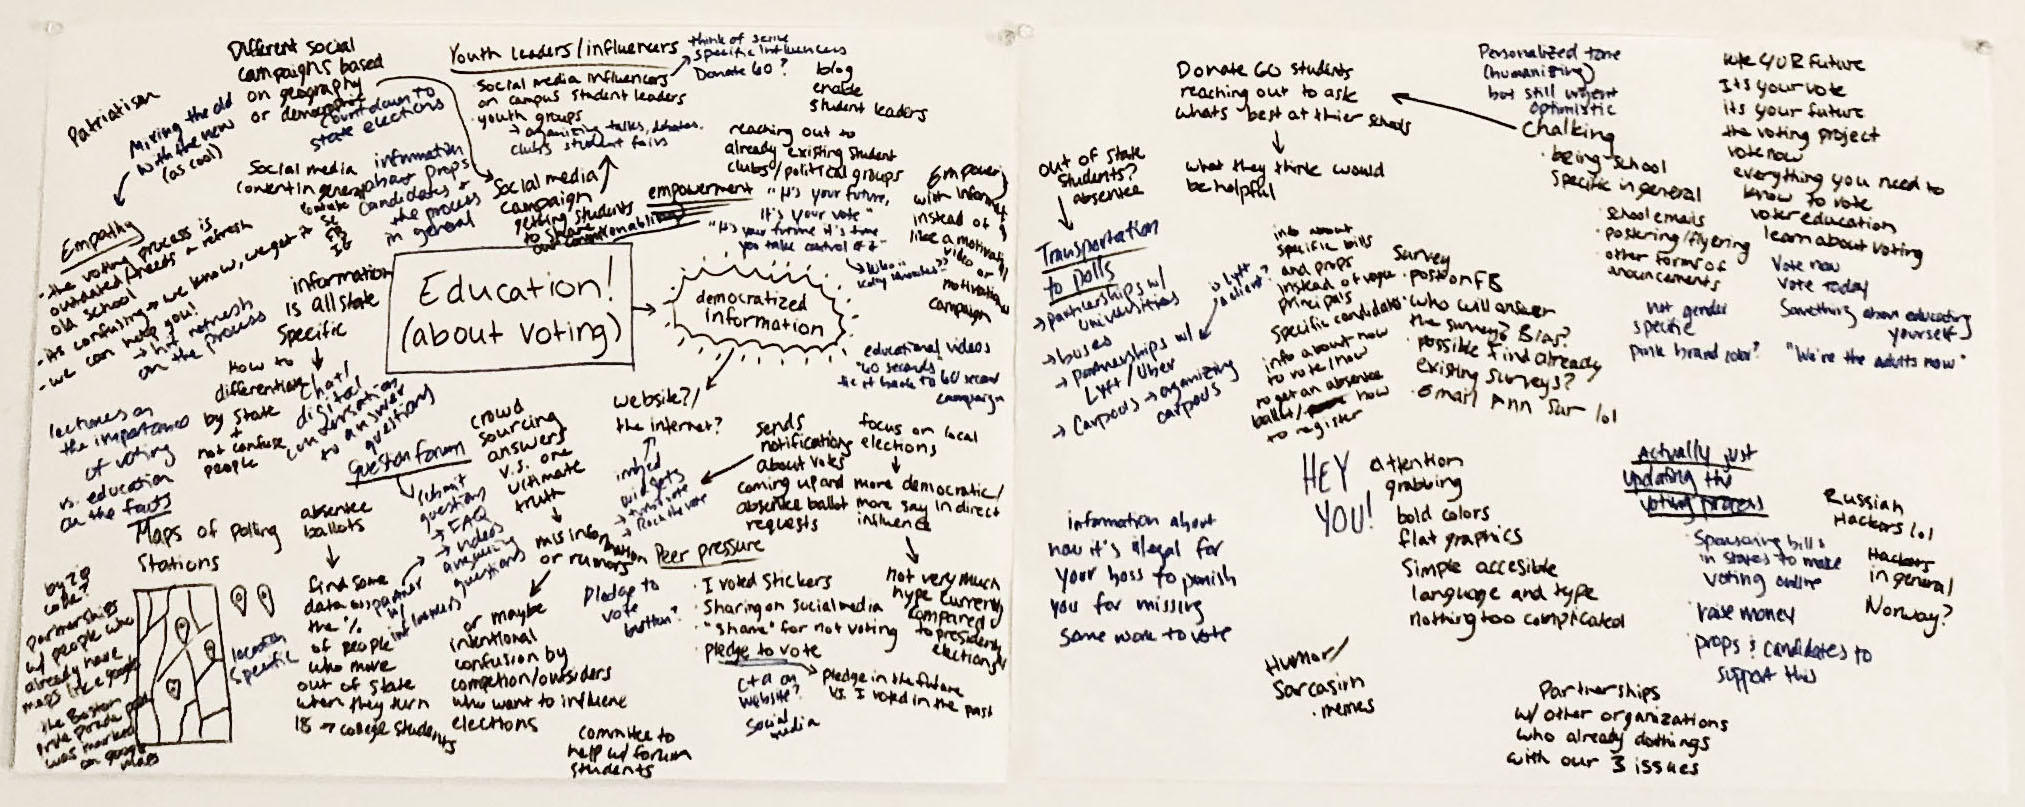 Patriotism
Mixing the old
with the new
(as cool)
Different social
campaigns based
on geography
or demographic
Countdown to
state elections
Youth leaders/influencers
Social media influencers
on campus student leaders
youth groups
→ organizing talks, debates,
clubs student fairs
think of some
specific influencers
Donate 60?
blog
enable
student leaders
reaching out to
already existing student
clubs/political groups
Empathy
- the voting process is
outdated/needs a refresh
old school
- its confusing → we know, we get it
- we can help you!
→ hit refresh
on the process
Social media
content in general
FB
IG
information
about props
candidates +
the process
in general
Social media
campaign
getting students
to share
empowerment
"It's your future,
It's your vote"
"It's your future it's time
you take control of it"
Empower
with information
instead of
like a motivational
video or
motivational
campaign
Education!
(about voting)
democratized
information
information
is all state
specific
How to
differentiate
by state
+
not confuse
people
chat/
digital
conversation
to answer
questions
educational videos
"60 seconds"
tie it back to 60 second
campaign
lectures on
the importance
of voting
vs. education
on the facts
Question forum
submit
questions
→ FAQ
→ videos
answering
questions
crowd
sourcing
answers
v.s. one
ultimate
truth
misinformation
or rumors
or maybe
intentional
confusion by
competion/outsiders
who want to influence
elections
website?/
the internet?
imbed
widgets
→ turbovote
Rock the vote
sends
notifications
about votes
coming up and
absentee ballot
requests
focus on local
elections
more democratic/
more say in direct
influence
not very much
hype currently
compared
to presidential
elections
Maps of polling
Stations
by zip
code?
partnerships
w/ people who
already have
maps like google
the Boston
pride parade path
was marked
on google
maps
location
specific
absentee
ballots
find some
data on
the %
of people
who move
out of state
when they turn
18 → college students
partner
w/
influencers
Pledge to
vote
button?
Peer pressure
· I voted stickers
· Sharing on social media
· "shame" for not voting
· pledge to vote
CTA on
website?
Social
media
pledge in the future
vs. I voted in the past
committee to
help w/ forum
students
Donate 60 students
reaching out to ask
whats best at thier schools
what they think would
be helpful
Personalized tone
(humanizing)
but still urgent
optimistic
Chalking
· being school
specific in general
· school emails
· postering/flyering
· other forms of
anouncements
not gender
specific
pink brand color?
It's your vote
its your future
the voting project
vote now
everything you need to
know to vote
voter education
learn about voting
Vote now
Vote Today
Something about educating
yourself
"We're the adults now"
out of state
students?
absentee
Transportation
to polls
→ partnerships w/
universities
→ buses
→ partnerships w/
Lyft/Uber
→ Carpools → organizing
carpools
is Lyft
a client?
info about
specific bills
and props
instead of vague
principals
specific candidates
info about how
to vote/how
to get an absentee
ballot/how
to register
Survey
· post on FB
· who will answer
the survey? Bias?
· possible find already
existing surveys?
· email Ann Sur lol
HEY
YOU!
attention
grabbing
bold colors
flat graphics
simple accesible
language and type
nothing too complicated
information about
how it's illegal for
your boss to punish
you for missing
some work to vote
Humor/
Sarcasm
· memes
Actually just
updating the
voting process
Sponsoring bills
in states to make
voting online
raise money
props & candidates to
support this
Russian
Hackers lol
Hackers
in general
Norway?
Partnerships
w/ other organizations
who already do things
with our 3 issues